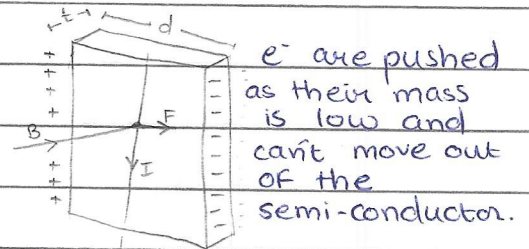 t d
e⁻ are pushed
as their mass
B F is low and
I can't move out
of the
semi-conductor.
+ + + + + + + +
- - - - - - - - - -